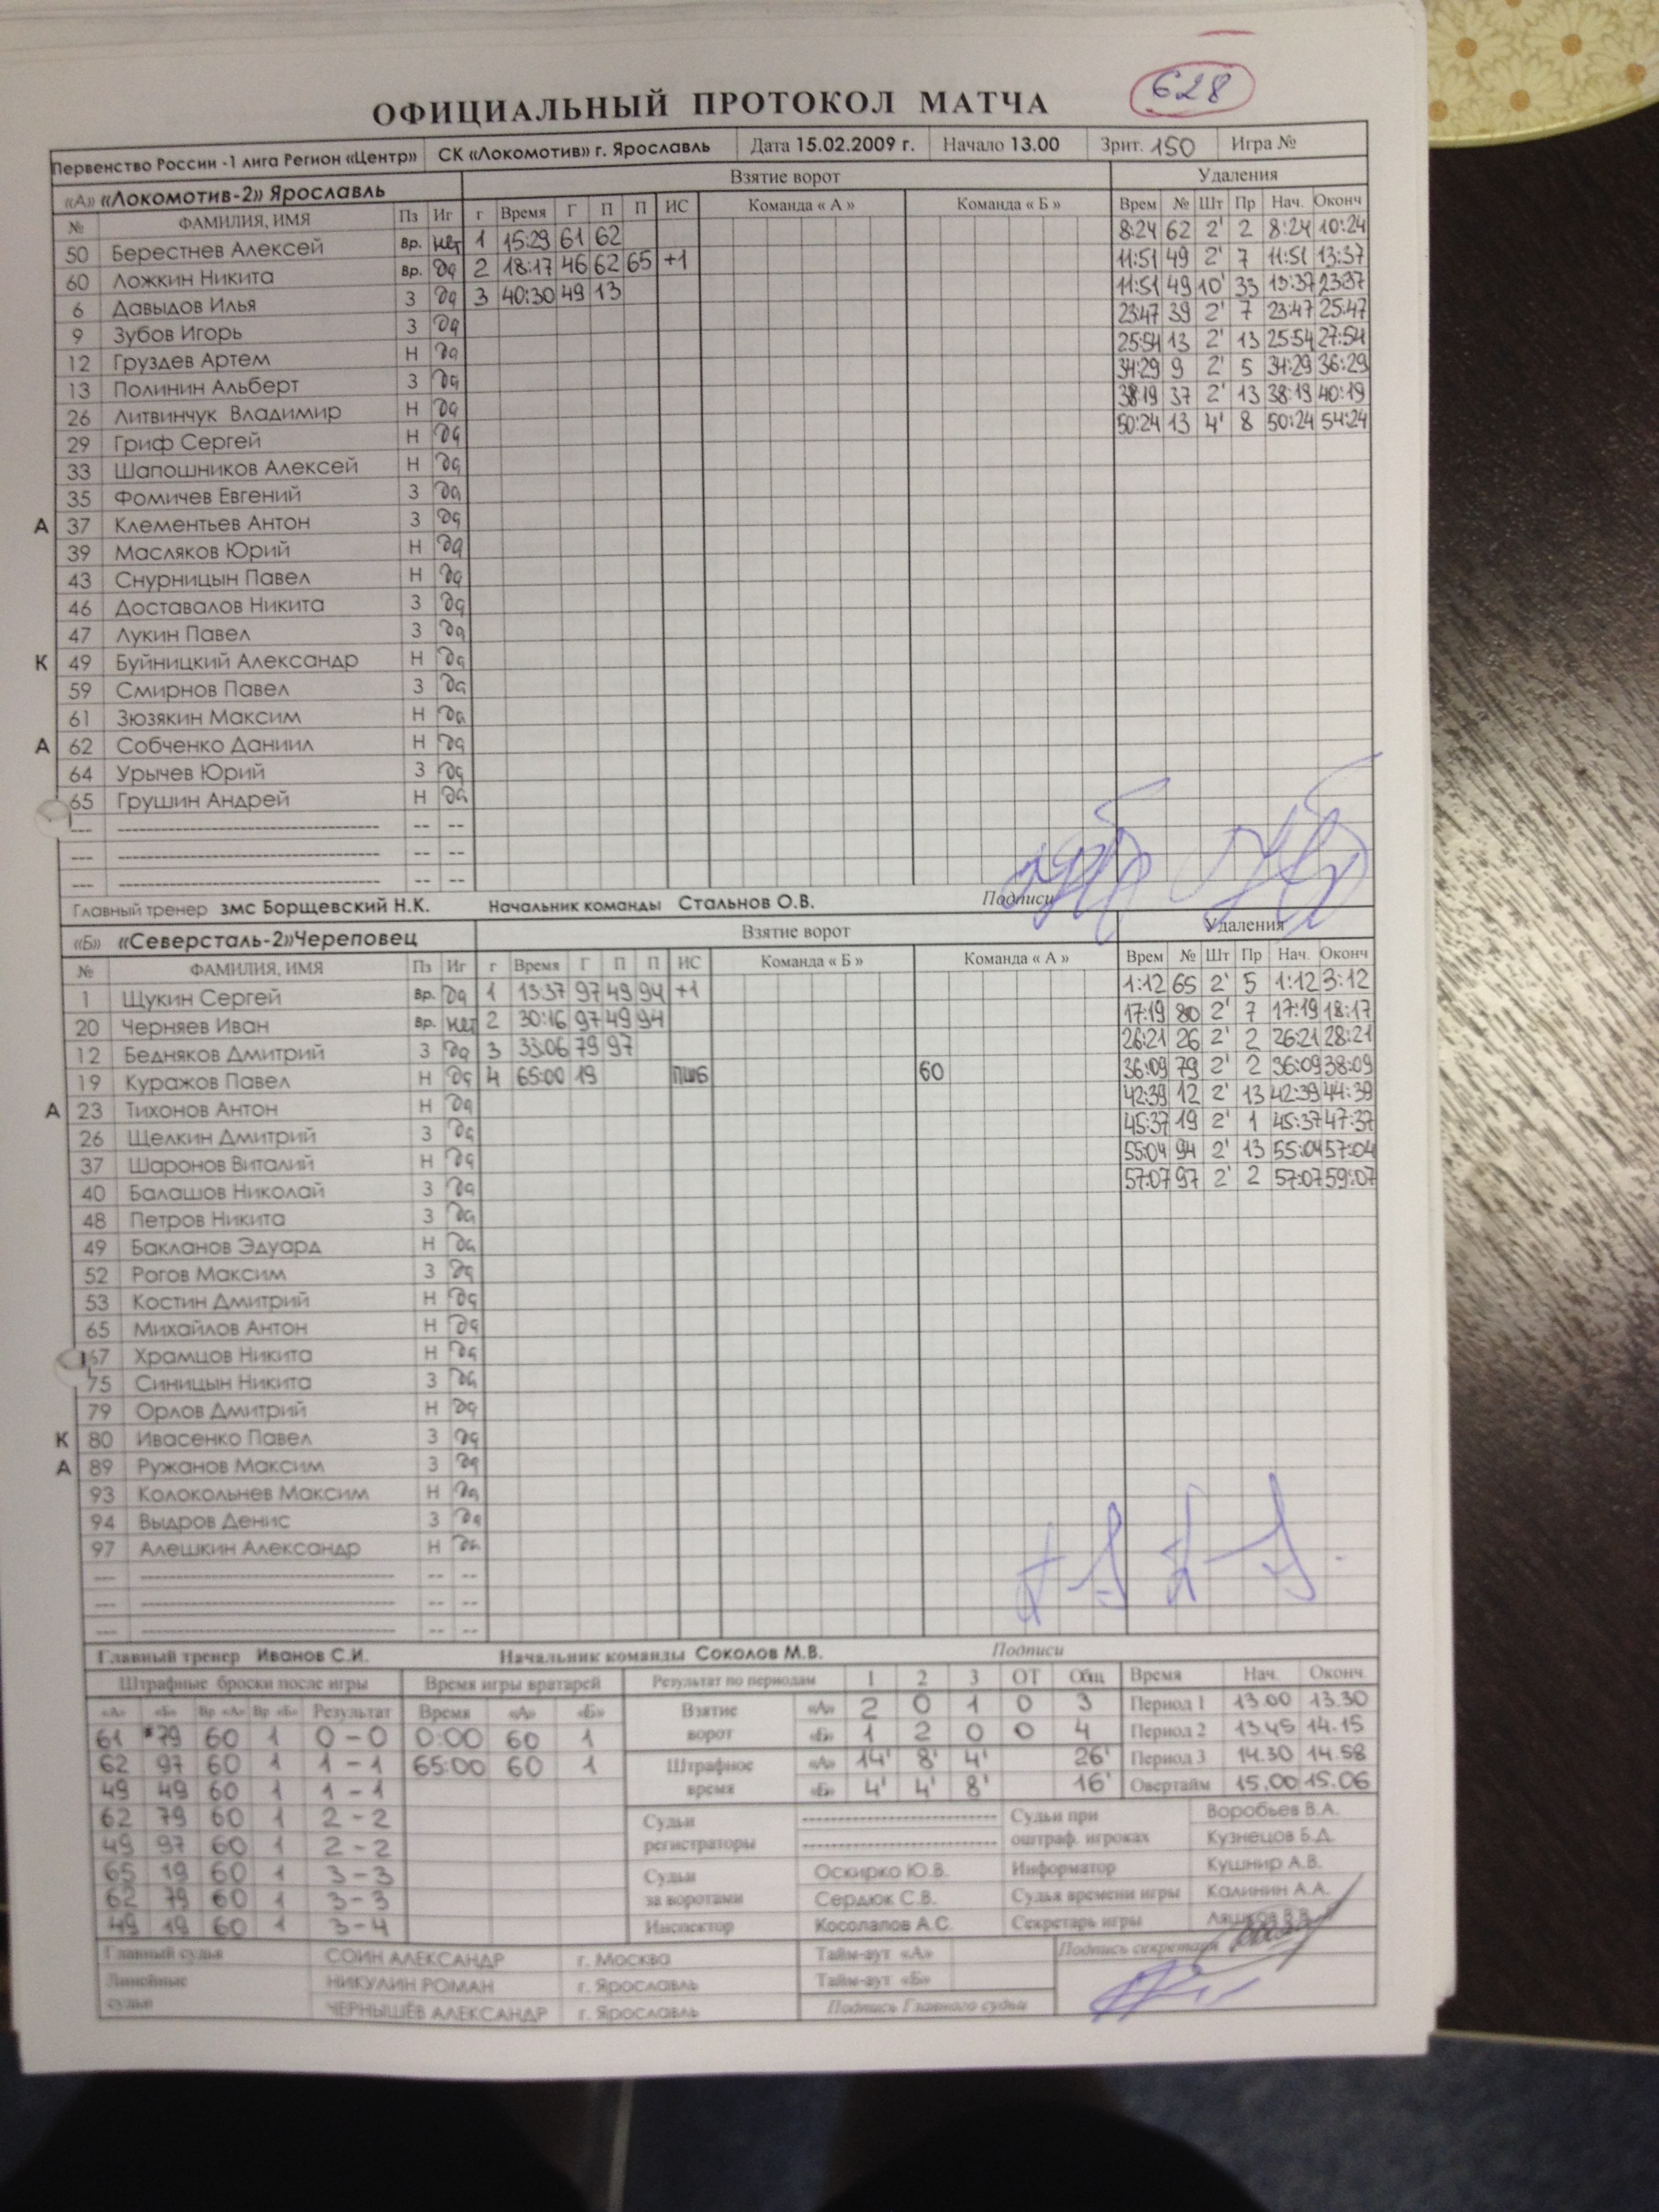 628
ОФИЦИАЛЬНЫЙ ПРОТОКОЛ МАТЧА
Первенство России -1 лига Регион «Центр» СК «Локомотив» г. Ярославль Дата 15.02.2009 г. Начало 13.00 Зрит. 150 Игра №
«А» «Локомотив-2» Ярославль Взятие ворот Удаления
№ ФАМИЛИЯ, ИМЯ Пз Иг г Время Г П П ИС Команда « А » Команда « Б » Врем № Шт Пр Нач. Оконч
50 Берестнев Алексей Вр. нет 1 15:29 61 62 8:24 62 2' 2 8:24 10:24
60 Ложкин Никита Вр. да 2 18:17 46 62 65 +1 11:51 49 2' 7 11:51 13:37
6 Давыдов Илья З да 3 40:30 49 13 11:51 49 10' 33 13:37 23:37
9 Зубов Игорь З да 23:47 39 2' 7 23:47 25:47
12 Груздев Артем Н да 25:54 13 2' 13 25:54 27:54
13 Полинин Альберт З да 34:29 9 2' 5 34:29 36:29
26 Литвинчук Владимир Н да 38:19 37 2' 13 38:19 40:19
29 Гриф Сергей Н да 50:24 13 4' 8 50:24 54:24
33 Шапошников Алексей Н да
35 Фомичев Евгений З да
А 37 Клементьев Антон З да
39 Масляков Юрий Н да
43 Снурницын Павел Н да
46 Доставалов Никита З да
47 Лукин Павел З да
К 49 Буйницкий Александр Н да
59 Смирнов Павел З да
61 Зюзякин Максим Н да
А 62 Собченко Даниил Н да
64 Урычев Юрий З да
65 Грушин Андрей Н да
Главный тренер змс Борщевский Н.К. Начальник команды Стальнов О.В. Подписи
«Б» «Северсталь-2»Череповец Взятие ворот Удаления
№ ФАМИЛИЯ, ИМЯ Пз Иг г Время Г П П ИС Команда « Б » Команда « А » Врем № Шт Пр Нач. Оконч
1 Щукин Сергей Вр. да 1 13:37 97 49 94 +1 1:12 65 2' 5 1:12 3:12
20 Черняев Иван Вр. нет 2 30:16 97 49 94 17:19 80 2' 7 17:19 18:17
12 Бедняков Дмитрий З да 3 33:06 79 97 26:21 26 2' 2 26:21 28:21
19 Куражов Павел Н да 4 65:00 19 ПШБ 60 36:09 79 2' 2 36:09 38:09
А 23 Тихонов Антон Н да 42:39 12 2' 13 42:39 44:39
26 Щелкин Дмитрий З да 45:37 19 2' 1 45:37 47:37
37 Шаронов Виталий Н да 55:04 94 2' 13 55:04 57:04
40 Балашов Николай З да 57:07 97 2' 2 57:07 59:07
48 Петров Никита З да
49 Бакланов Эдуард Н да
52 Рогов Максим З да
53 Костин Дмитрий Н да
65 Михайлов Антон Н да
67 Храмцов Никита Н да
75 Синицын Никита З да
79 Орлов Дмитрий Н да
К 80 Ивасенко Павел З да
А 89 Ружанов Максим З да
93 Колокольнев Максим Н да
94 Выдров Денис З да
97 Алешкин Александр Н да
Главный тренер Иванов С.И. Начальник команды Соколов М.В. Подписи
Штрафные броски после игры Время игры вратарей Результат по периодам 1 2 3 ОТ Общ Время Нач. Оконч.
«А» «Б» Вр «А» Вр «Б» Результат Время «А» «Б» Взятие ворот «А» 2 0 1 0 3 Период 1 13.00 13.30
61 *79 60 1 0-0 0:00 60 1 «Б» 1 2 0 0 4 Период 2 13.45 14.15
62 97 60 1 1-1 65:00 60 1 Штрафное время «А» 14' 8' 4' 26' Период 3 14.30 14.58
49 49 60 1 1-1 «Б» 4' 4' 8' 16' Овертайм 15.00 15.06
62 79 60 1 2-2 Судьи регистраторы Судьи при оштраф. игроках Воробьев В.А.
49 97 60 1 2-2 Кузнецов Б.Д.
65 19 60 1 3-3 Судьи за воротами Оскирко Ю.В. Информатор Кушнир А.В.
62 79 60 1 3-3 Сердюк С.В. Судья времени игры Калинин А.А.
49 19 60 1 3-4 Инспектор Косолапов А.С. Секретарь игры Ляшков В.В.
Главный судья СОИН АЛЕКСАНДР г. Москва Тайм-аут «А» Подпись секретаря
Линейные судьи НИКУЛИН РОМАН г. Ярославль Тайм-аут «Б»
ЧЕРНЫШЁВ АЛЕКСАНДР г. Ярославль Подпись Главного судьи